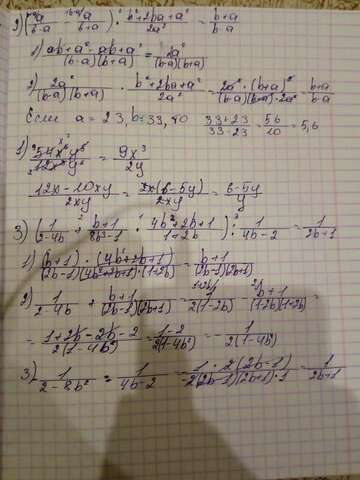 2) (a/(b-a) - a/(b+a)) · (b²+2ba+a²)/2a² = (b+a)/(b-a)
1) (ab+a²-ab+a²)/((b-a)(b+a)) = 2a²/((b-a)(b+a))
2) 2a²/((b-a)(b+a)) · (b²+2ba+a²)/2a² = (2a²·(b+a)²)/((b-a)(b+a)·2a²) = (b+a)/(b-a)
Если a = 23, b = 33, то (33+23)/(33-23) = 56/10 = 5,6
1) = 9x³/2y
(12x-10xy)/2xy = 2x(6-5y)/2xy = (6-5y)/y
3) (1/(2-4b) + (b+1)/(8b³-1) · (4b²+2b+1)/(1+2b)) : 1/(4b-2) = 1/(2b+1)
1) ((b+1)·(4b²+2b+1))/((2b-1)(4b²+2b+1)·(1+2b)) = (b+1)/((2b-1)(2b+1))
2) 1/(2-4b) + (b+1)/((2b-1)(2b+1)) = 1/(2(1-2b)) - (b+1)/((1-2b)(1+2b)) =
= (1+2b-2b-2)/(2(1-4b²)) = (1-2)/(2(1-4b²)) = 1/(2(1-4b²))
3) -1/(2-8b²) : 1/(4b-2) = (1·2(2b-1))/(2(2b-1)(2b+1)·1) = 1/(2b+1)